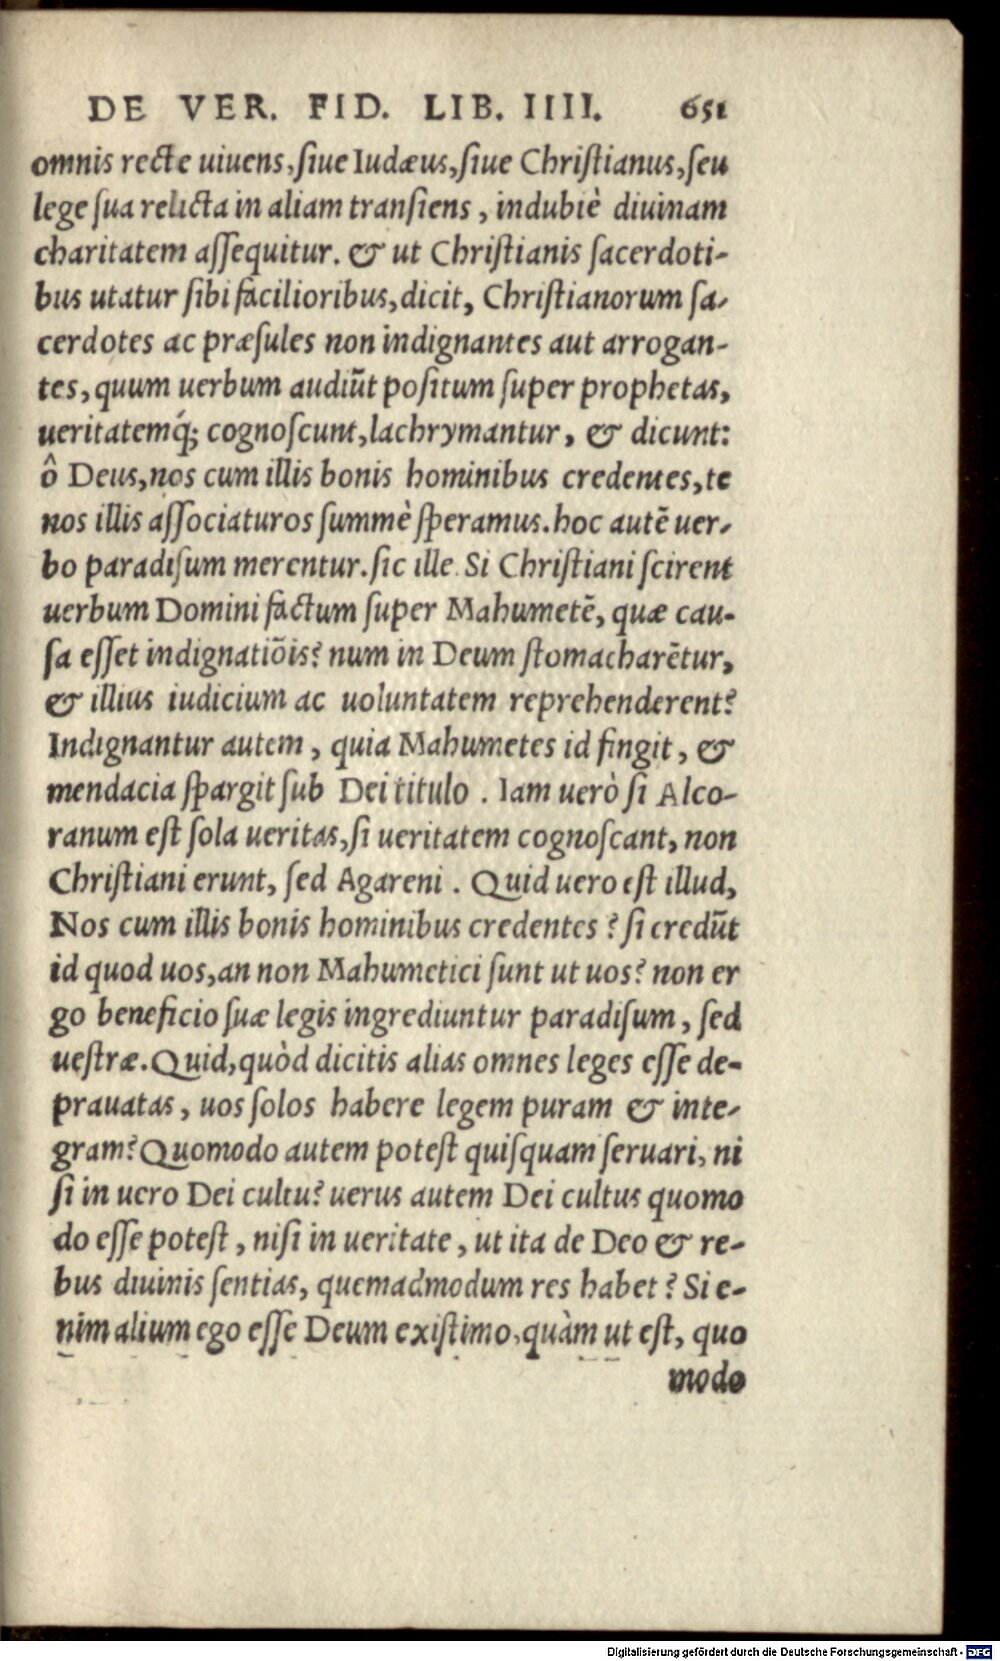 DE VER. FID. LIB. IIII. 651
omnis recte uiuens, ſiue Iudæus, ſiue Chriſtianus, ſeu
lege ſua relicta in aliam tranſiens, indubiè diuinam
charitatem aſſequitur. & ut Chriſtianis ſacerdoti-
bus utatur ſibi facilioribus, dicit, Chriſtianorum ſa-
cerdotes ac præſules non indignantes aut arrogan-
tes, quum uerbum audiũt poſitum ſuper prophetas,
ueritatemq́; cognoſcunt, lachrymantur, & dicunt:
ô Deus, nos cum illis bonis hominibus credentes, te
nos illis aſſociaturos ſummè ſperamus. hoc autẽ uer-
bo paradiſum merentur. ſic ille. Si Chriſtiani ſcirent
uerbum Domini factum ſuper Mahumetẽ, quæ cau-
ſa eſſet indignatiõis? num in Deum ſtomacharẽtur,
& illius iudicium ac uoluntatem reprehenderent?
Indignantur autem, quia Mahumetes id fingit, &
mendacia ſpargit ſub Dei titulo. Iam uerò ſi Alco-
ranum eſt ſola ueritas, ſi ueritatem cognoſcant, non
Chriſtiani erunt, ſed Agareni. Quid uero eſt illud,
Nos cum illis bonis hominibus credentes? ſi credũt
id quod uos, an non Mahumetici ſunt ut uos? non er
go beneficio ſuæ legis ingrediuntur paradiſum, ſed
ueſtræ. Quid, quòd dicitis alias omnes leges eſſe de-
prauatas, uos ſolos habere legem puram & inte-
gram? Quomodo autem poteſt quiſquam ſeruari, ni
ſi in uero Dei cultu? uerus autem Dei cultus quomo
do eſſe poteſt, niſi in ueritate, ut ita de Deo & re-
bus diuinis ſentias, quemadmodum res habet? Si e-
nim alium ego eſſe Deum exiſtimo, quàm ut eſt, quo
modo
Digitalisierung gefördert durch die Deutsche Forschungsgemeinschaft - DFG